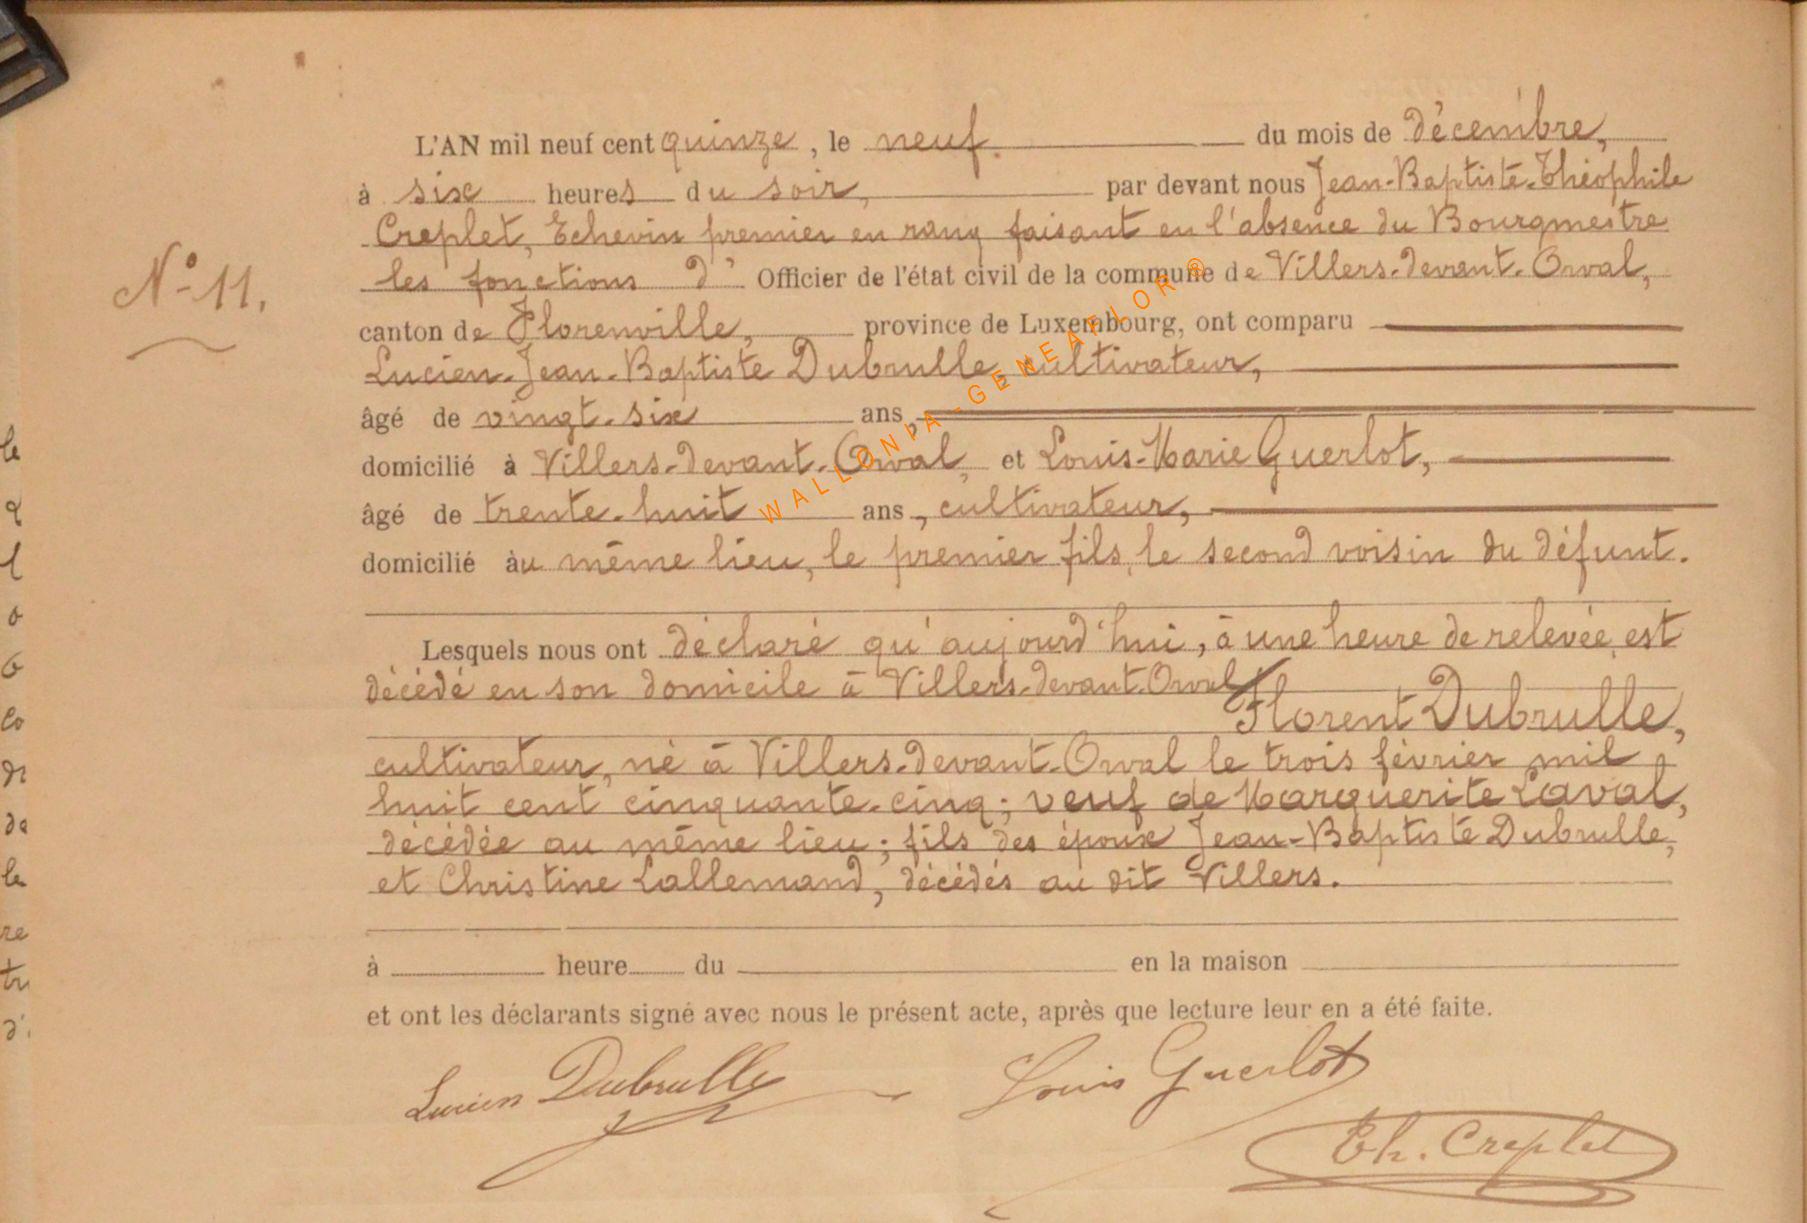 L'AN mil neuf cent quinze, le neuf du mois de décembre,
à six heures du soir, par devant nous Jean-Baptiste-Théophile
Creplet, Echevin premier en rang faisant en l'absence du Bourgmestre
les fonctions d' Officier de l'état civil de la commune de Villers-devant-Orval,
N° 11.
canton de Florenville, province de Luxembourg, ont comparu
Lucien-Jean-Baptiste Dubrulle, cultivateur,
âgé de vingt-six ans,
domicilié à Villers-devant-Orval, et Louis-Marie Guerlot,
âgé de trente-huit ans, cultivateur,
domicilié àu même lieu, le premier fils, le second voisin du défunt.
Lesquels nous ont déclaré qu'aujourd'hui, à une heure de relevée, est
décédé en son domicile à Villers-devant-Orval
Florent Dubrulle,
cultivateur, né à Villers-devant-Orval le trois février mil
huit cent cinquante-cinq; veuf de Marguerite Laval,
décédée au même lieu; fils des époux Jean-Baptiste Dubrulle,
et Christine Lallemand, décédés au dit Villers.
à heure du en la maison
et ont les déclarants signé avec nous le présent acte, après que lecture leur en a été faite.
Lucien Dubrulle Louis Guerlot
Th. Creplet
WALLONIA-GENEAFLOR ®